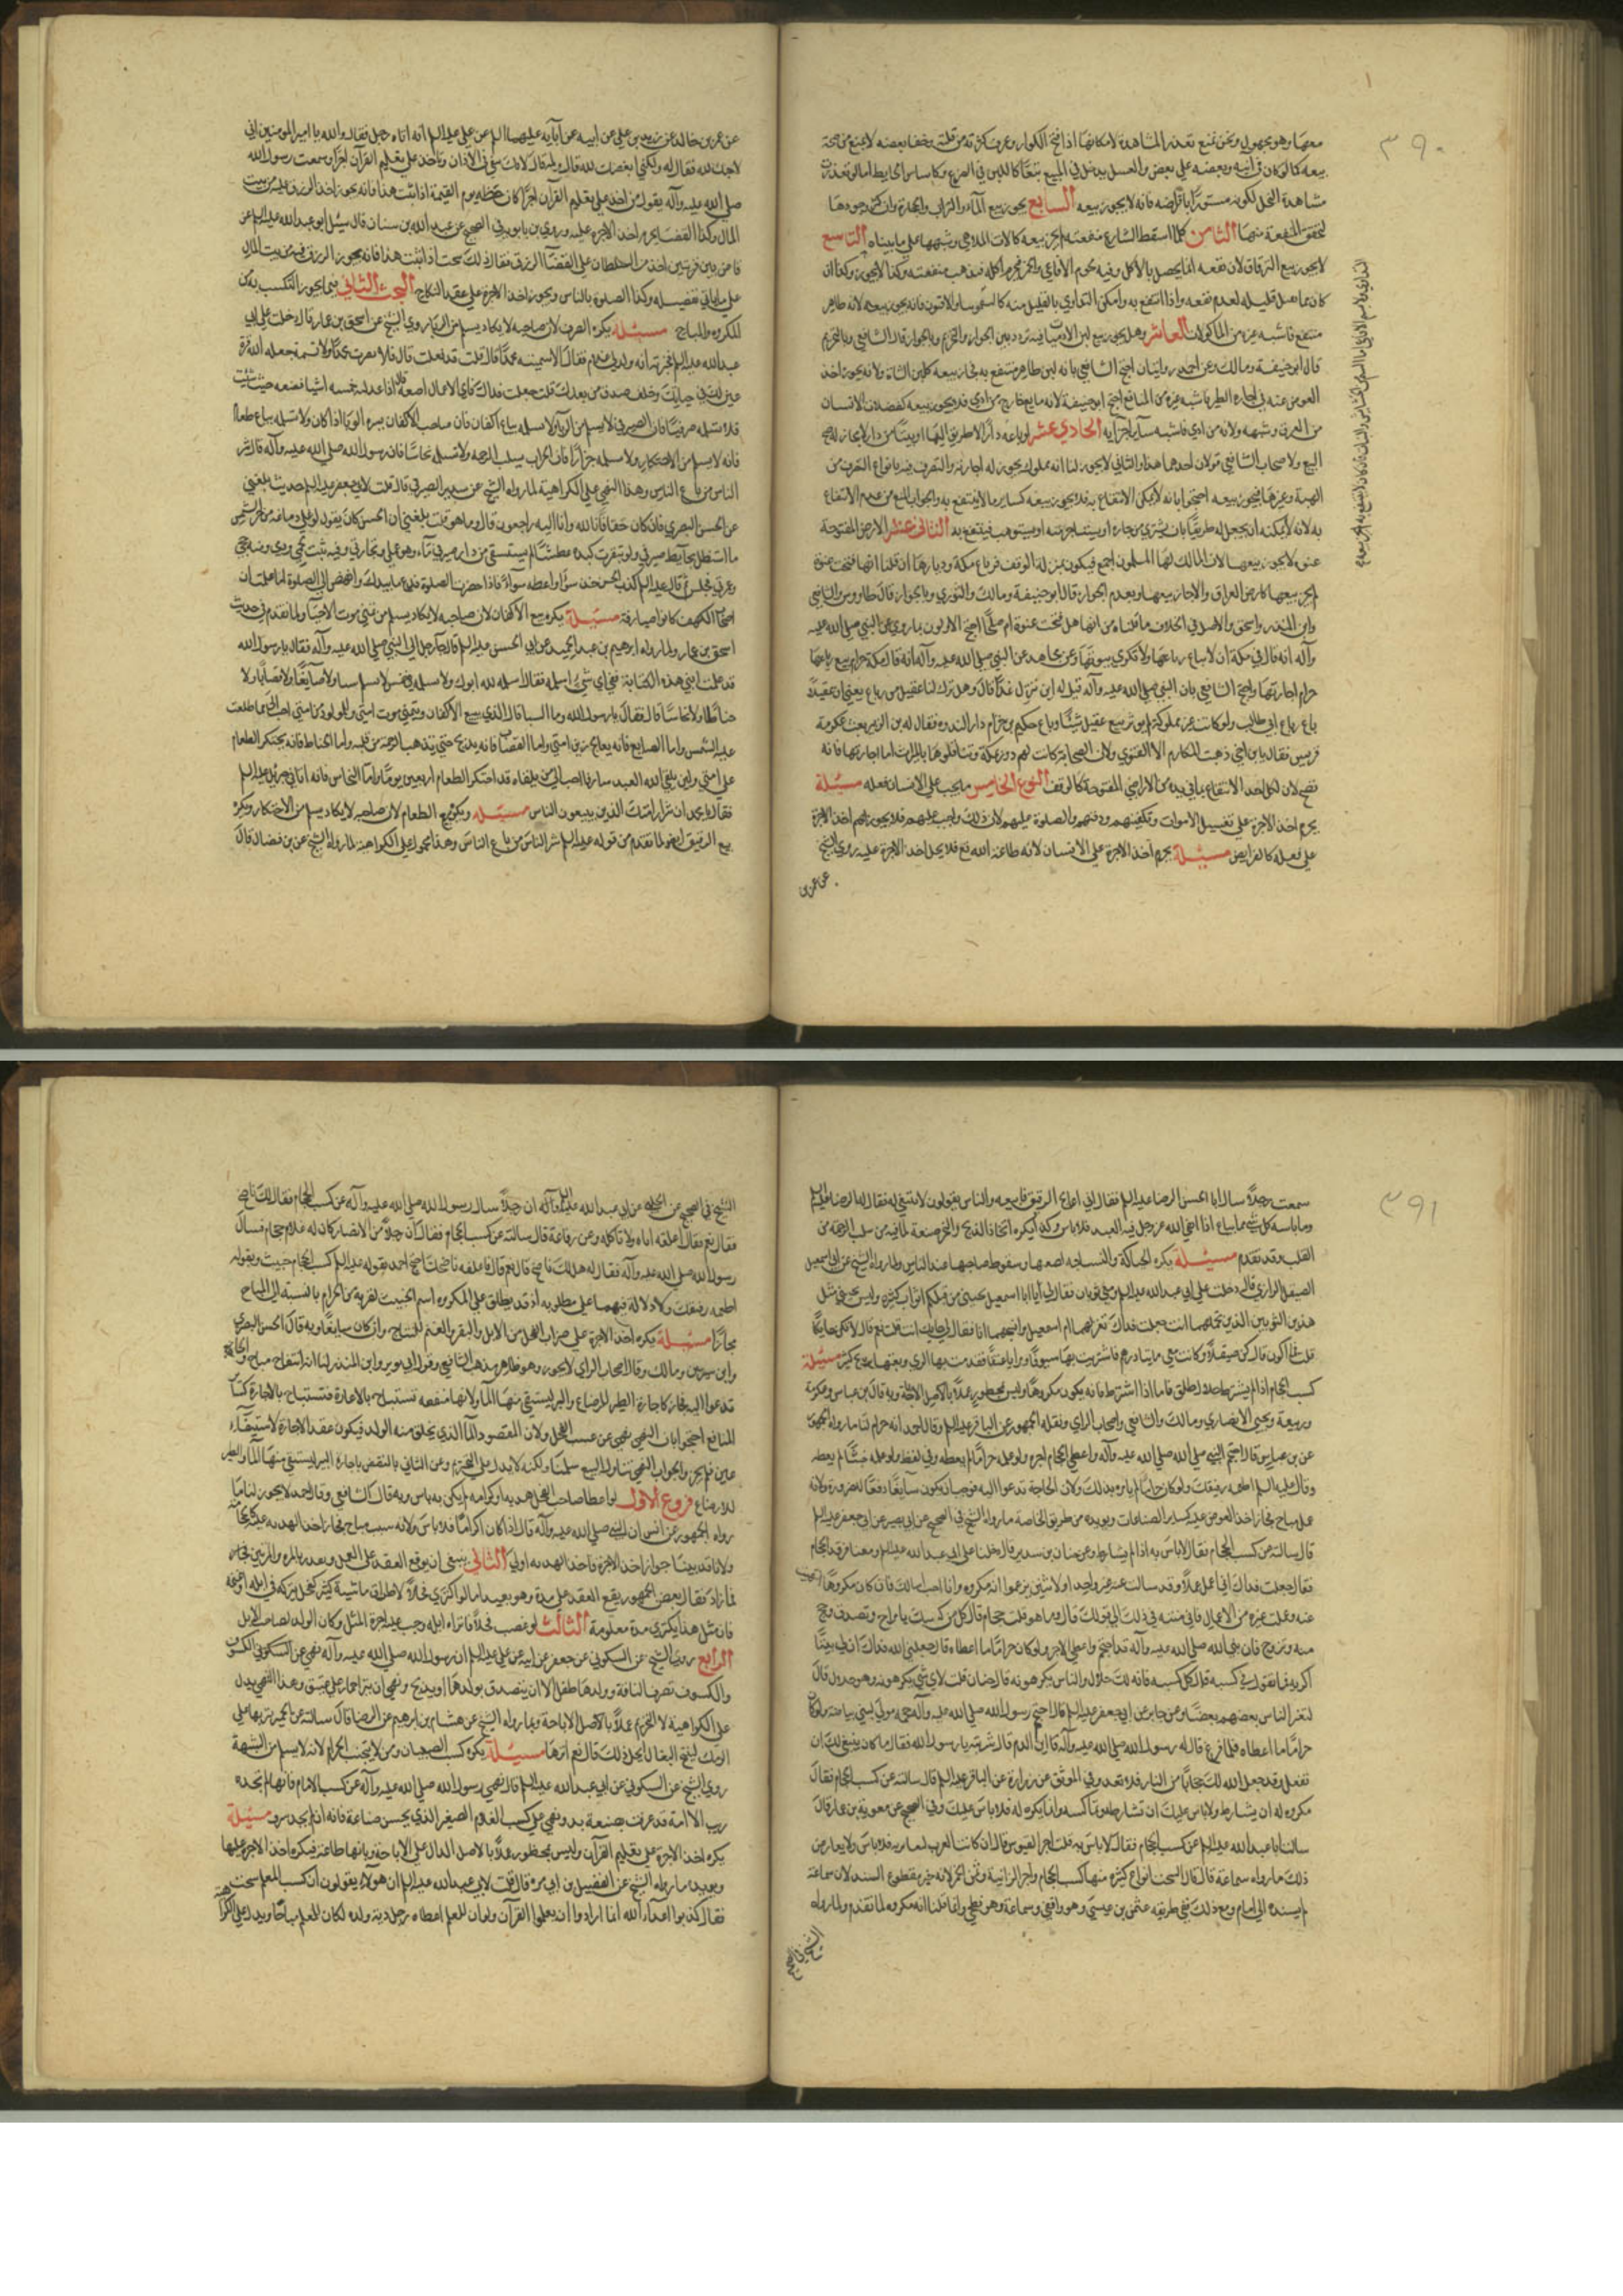 ٣٩٠
معها وهو مجهول ونحن نمنع تعذر المشاهدة لامكانها اذا فتح الكوارة وعرف كثرته من قلته وخفاء بعضه لا يمنع من صحة
بيعه كما لو كان في آنية وبعضه على بعض والعسل يدخل في المبيع تبعا كاللبن في الضرع وكاساس الحايط اما لو تعذرت
مشاهدة النحل لكونه مستورا باقراصه فانه لا يجوز بيعه السابع يجوز بيع الماء والتراب والحجارة وان كثر وجودها
لتحقق المنفعة منها الثامن كلما اسقط الشارع منفعته لم يجز بيعه كالات الملاهي وشبهها على ما بيناه التاسع
لا يجوز بيع الترياق لان نفعه انما يحصل بالاكل وفيه لحوم الافاعي والخمر فحرم اكله فتذهب منفعته وكذا لا يجوز
منتفع فاشبه غيره من المأكولات العاشر وهل يجوز بيع لبن الادميات فيه تردد بين الجواز والتحريم وبالجواز قال الشافعي وبالتحريم
قال ابو حنيفة ومالك وعن احمد روايتان احتج الشافعي بانه لبن طاهر منتفع به فجاز بيعه كلبن الشاة ولانه يجوز اخذ
العوض عنه في اجارة الظئر فاشبه غيره من المنافع احتج ابو حنيفة لانه مايع خارج من ادمي فلا يجوز بيعه كفضلات الانسان
من العرق وشبهه ولانه من ادمي فاشبه ساير اجزائه الحادي عشر لو باعه دارا لا طريق اليها او بيتا من دار لا مجاز له صح
البيع ولاصحاب الشافعي قولان احدهما هذا والثاني لا يجوز لنا انه مملوك يجوز له اجارته والتصرف فيه بانواع التصرف من
الهبة وغيرها فيجوز بيعه احتجوا بانه لا يمكن الانتفاع به فلا يجوز بيعه كساير ما لا ينتفع به والجواب المنع من عدم الانتفاع
به لانه يمكنه ان يجعل له طريقا بان يشتري من جاره او يستاجر منه او يستوهب فينتفع به الثاني عشر الارض المفتوحة
عنوة لا يجوز بيعها لان المالك لها المسلمون اجمع فيكون بمنزلة الوقف فرباع مكة ودورها ان قلنا انها فتحت عنوة
لم يجز بيعها كارض العراق والا جاز بيعها وبعدم الجواز قال ابو حنيفة ومالك والثوري وبالجواز قال طاووس والشافعي
وابن المنذر واسحق والاصل في الخلاف ما قلناه من انها هل فتحت عنوة ام صلحا احتج الاولون بما روي عن النبي صلى الله عليه
وآله انه قال في مكة ان لا تباع رباعها ولا تكرى بيوتها وعن مجاهد عن النبي صلى الله عليه وآله انه قال مكة حرام بيع رباعها
حرام اجارتها واحتج الشافعي بان النبي صلى الله عليه وآله قيل له اين تنزل غدا قال وهل ترك لنا عقيل من رباع يعني ان عقيلا
باع رباع ابي طالب ولو كانت غير مملوكة لم يؤثر بيع عقيل شيئا وباع حكيم بن حزام دار الندوة فقال له ابن الزبير بعت مكرمة
قريش فقال يا بن اخي ذهبت المكارم الا التقوى ولان الصحابة كانت لهم دور بمكة وتناقلوها بالميراث اما اجارتها فانه
تصح لان لكل احد الانتفاع بما في يده من الاراضي المفتوحة كالوقف النوع الخامس ما يجب على الانسان فعله مسئلة
يحرم اخذ الاجرة على تغسيل الاموات وتكفينهم ودفنهم والصلوة عليهم لان ذلك واجب عليهم فلا يجوز لهم اخذ الاجرة
على فعله كالفرايض مسئلة يحرم اخذ الاجرة على الاذان لانه طاعة لله تع فلا يحل اخذ الاجرة عليه روى الشيخ
عن عمرو بن
عن عمرو بن خالد عن زيد بن علي عن ابيه عن آبائه عليهم السلم عن علي عليه السلم انه اتاه رجل فقال والله يا امير المؤمنين اني
لاحبك لله فقال له ولكني ابغضك لله قال ولم قال لانك تبغي في الاذان وتاخذ على تعليم القرآن اجرا وسمعت رسول الله
صلى الله عليه وآله يقول من اخذ على تعليم القرآن اجرا كان حظه يوم القيمة
المال وكذا القضاء يحرم اخذ الاجرة عليه وروى ابن بابويه في الصحيح عن عبد الله بن سنان قال سئل ابو عبد الله عليه السلم عن
قاض بين فريتين ياخذ من السلطان على القضاء الرزق فقال ذلك سحت
على ما ياتي تفصيله وكذا الصلوة بالناس ويجوز اخذ الاجرة على عقد النكاح البحث الثاني فيما يجوز التكسب به من
المكروه والمباح مسئلة يكره الصرف لان صاحبه لا يكاد يسلم من الربا روى الشيخ عن اسحق بن عمار قال دخلت على ابي
عبد الله عليه السلم فخبرته انه ولد لي غلام فقال الا سميته محمدا قال قلت قد فعلت قال فلا تضرب محمدا ولا تشتمه جعله الله قرة
عين لك في حياتك وخلف صدق من بعدك قلت جعلت فداك في اي الاعمال اضعه قال اذا عدلته عن خمسة اشياء فضعه حيث شئت
فلا تسلمه صرفيا فان الصيرفي لا يسلم من الربا ولا تسلمه بياع اكفان فان صاحب الاكفان يسره الوبا اذا كان ولا تسلمه بياع طعام
فانه لا يسلم من الاحتكار ولا تسلمه جزارا فان الجزار يسلب الرحمة ولا تسلمه نخاسا فان رسول الله صلى الله عليه وآله قال شر
الناس من باع الناس وهذا النهي على الكراهية لما رواه الشيخ عن سدير الصيرفي قال قلت لابي جعفر عليه السلم حديث بلغني
عن الحسن البصري فان كان حقا فانا لله وانا اليه راجعون قال وما هو قلت بلغني ان الحسن كان يقول لو غلى دماغه من حر الشمس
ما استظل بحايط صيرفي ولو تفرت كبده عطشا لم يستسق من دار صيرفي ماء وهو عملي وتجارتي وفيه نبت لحمي ودمي ومنه حجي
وعمرتي فجلس ثم قال عليه السلم كذب الحسن خذ سواء واعطه سواء فاذا حضرت الصلوة فدع ما بيدك وانهض الى الصلوة اما علمت ان
اصحاب الكهف كانوا صيارفة مسئلة يكره بيع الاكفان لان صاحبه لا يكاد يسلم من تمني موت الاحياء ولما تقدم في حديث
اسحق بن عمار ولما رواه ابراهيم بن عبد الحميد عن ابي الحسن عليه السلم قال جاء رجل الى النبي صلى الله عليه وآله فقال يا رسول الله
قد علمت ابني هذه الكتابة ففي اي شيء اسلمه فقال اسلمه لله ابوك ولا تسلمه في خمس لا تسلمه سباء ولا صايغا ولا قصابا ولا
حناطا ولا نخاسا قال فقال يا رسول الله وما السبا قال الذي يبيع الاكفان ويتمنى موت امتي وللمولود من امتي احب الي مما طلعت
عليه الشمس واما الصايغ فانه يعالج زين امتي واما القصاب فانه يذبح حتى يذهب الرحمة من قلبه واما الحناط فانه يحتكر الطعام
على امتي ولئن يلقى الله العبد سارقا احب الي من يلقاه قد احتكر الطعام اربعين يوما واما النخاس فانه اتاني جبرئيل عليه السلم
فقال يا محمد ان شرار امتك الذين يبيعون الناس مسئلة ويكره بيع الطعام لان صاحبه لا يكاد يسلم من الاحتكار ويكره
بيع الرقيق ايضا لما تقدم من قوله عليه السلم شر الناس من باع الناس وهذا محمول على الكراهية لما رواه الشيخ عن ابن فضال قال
٣٩١
سمعت رجلا سال ابا الحسن الرضا عليه السلم فقال اني اعالج الرقيق فابيعه والناس يقولون لا ينبغي له فقال له الرضا عليه السلم
وما باسه كل شيء مما يباع اذا اتقى الله عز وجل فيه العبد فلا باس وكذا يكره اتخاذ الذبح والنحر صنعة لما فيه من سلب الرحمة من
القلب وقد تقدم مسئلة يكره الحياكة والنساجة لضعتها وسقوط صاحبها عند الناس ولما رواه الشيخ عن ابي اسمعيل
الصيقل الرازي قال دخلت على ابي عبد الله عليه السلم ومعي ثوبان فقال لي يا ابا اسمعيل تجيئني من قبلكم اثواب كثيرة وليس يجيئني مثل
هذين الثوبين الذين تحملهما انت فقلت جعلت فداك تغزلهما ام اسمعيل وانسجهما انا فقال لي حايك انت قلت نعم قال لا تكن حايكا
قلت فما اكون قال كن صيقلا وكانت معي مايتا درهم فاشتريت بها سيوفا ومرايا عتقا وقدمت بها الري وبعتها بربح كثير مسئلة
كسب الحجام اذا لم يشترط حلال طلق فاما اذا اشترط فانه يكون مكروها وليس بمحظور عملا بالاصل الاباحة وبه قال ابن عباس وعكرمة
وربيعة ويحيى الانصاري ومالك والشافعي واصحاب الراي ونقله الجمهور عن الباقر عليه السلم وقال احمد انه حرام لنا ما رواه الجمهور
عن ابن عباس قال احتجم النبي صلى الله عليه وآله واعطى الحجام اجره ولو علمه حراما لم يعطه وفي لفظ ولو علمه خبيثا لم يعطه
وقال عليه السلم اطعمه رقيقك ولو كان حراما لم يامره بذلك ولان الحاجة تدعو اليه فوجب ان يكون سايغا دفعا للضرورة ولانه
عمل مباح فجاز اخذ العوض عليه كساير الصناعات ويؤيده من طريق الخاصة ما رواه الشيخ في الصحيح عن ابي بصير عن ابي جعفر عليه السلم
قال سالته عن كسب الحجام فقال لا باس به اذا لم يشارط وعن حنان بن سدير قال دخلنا على ابي عبد الله عليه السلم ومعنا فرقد الحجام
فقال جعلت فداك اني اعمل عملا وقد سالت عنه غير واحد ولا اثنين فزعموا انه مكروه وانا احب اسالك فان كان مكروها
عنه وعملت غيره من الاعمال فاني منته في ذلك الى قولك قال وما هو قلت حجام قال كل من كسبك يا بن اخ وتصدق وحج
منه وتزوج فان نبي الله صلى الله عليه وآله قد احتجم واعطى الاجر ولو كان حراما ما اعطاه قال جعلني الله فداك ان لي تيسا
اكريه فما تقول في كسبه قال كل كسبه فانه لك حلال والناس يكرهونه قال حنان قلت لاي شيء يكرهونه وهو حلال قال
لتعير الناس بعضهم بعضا وعن جابر عن ابي جعفر عليه السلم قال احتجم رسول الله صلى الله عليه وآله حجمه مولى لبني بياضة ولو كان
حراما ما اعطاه فلما فرغ قال له رسول الله صلى الله عليه وآله اين الدم قال شربته يا رسول الله فقال ما كان ينبغي لك ان
تفعل وقد جعل الله لك حجابا من النار فلا تعد وفي الموثق عن زرارة عن الباقر عليه السلم قال سالته عن كسب الحجام فقال
مكروه له ان يشارط ولا باس عليك ان تشارطه وتماكسه وانما يكره له فلا باس عليك وفي الصحيح عن معوية بن عمار قال
سالت ابا عبد الله عليه السلم عن كسب الحجام فقال لا باس به قلت اجر التيوس قال ان كانت العرب لتعاير به فلا باس ولا يعارض
ذلك ما رواه سماعة قال قال السحت انواع كثيرة منها كسب الحجام واجر الزانية وثمن الخمر لانه خبر مقطوع السند لان سماعة
لم يسنده الى امام ومع ذلك ففي طريقه عثمن بن عيسى وهو واقفي وسماعة وهو فطحي وانما قلنا انه مكروه لما تقدم ولما رواه
الشيخ في الصحيح
الشيخ في الصحيح عن الحلبي عن ابي عبد الله عليه السلم ان رجلا سال رسول الله صلى الله عليه وآله عن كسب الحجام فقال لك ناضح
فقال نعم فقال اعلفه اياه ولا تاكله وعن رفاعة قال سالته عن كسب الحجام فقال ان رجلا من الانصار كان له غلام حجام فسال
رسول الله صلى الله عليه وآله فقال له هل لك ناضح قال نعم قال فاعلفه ناضحك احتج احمد بقوله عليه السلم كسب الحجام خبيث وبقوله
اطعمه رقيقك ولا دلالة فيهما على مطلوبه اذ قد يطلق على المكروه اسم الخبيث لقربه من الحرام بالنسبة الى المباح
مجازا مسئلة يكره اخذ الاجرة على ضراب الفحل من الابل والبقر والغنم للنتاج وان كان سايغا وبه قال الحسن البصري
وابن سيرين ومالك وقال اصحاب الراي لا يجوز وهو ظاهر مذهب الشافعي وقول ابي ثور وابن المنذر لنا انه انتفاع مباح والحاجة
تدعوا اليه فجاز كاجارة الظئر للرضاع والبئر ليستقي منها الماء ولانها منفعة تستباح بالاعارة فتستباح بالاجارة كساير
المنافع احتجوا بان النبي نهى عن عسب الفحل ولان المقصود الماء الذي يخلق منه الولد فيكون عقد الاجارة لاستيفاء
عين فلم يجز والجواب النهي يتناول البيع سلمنا ولكنه لا يدل على التحريم وعن الثاني بالنقض باجارة البئر ليستقي منها الماء والظئر
للارضاع فروع الاول لو اعطا صاحب الفحل هدية او كرامة لم يكن به باس وبه قال الشافعي وقال احمد لا يجوز لنا ما
رواه الجمهور عن انس ان النبي صلى الله عليه وآله قال اذا كان اكراما فلا باس ولانه سبب مباح فجاز اخذ الهدية عليه كالحجامة
ولانا قد بينا جواز اخذ الاجرة فاخذ الهدية اولى الثاني ينبغي ان يوقع العقد على العمل ويقدره بالمرة والمرتين
فما زاد فقال بعض الجمهور يقع العقد على مدة وهو بعيد اما لو اكترى فحلا لاطراق ماشية كثيرة كفحل يتركه في ابله او غنمه
فان مثل هذا يكترى مدة معلومة الثالث لو غصب فحلا فانزاه ابله وجب عليه اجرة المثل وكان الولد لصاحب الابل
الرابع روى الشيخ عن السكوني عن جعفر عن ابيه عن علي عليه السلم ان رسول الله صلى الله عليه وآله نهى عن الكسوف
على الكراهية لا التحريم عملا بالاصل الاباحة وبما رواه الشيخ عن هشام بن ابرهيم عن الرضا قال سالته عن الحمير تنزيها على
الرمك لتنتج البغال ايحل ذلك قال نعم انزها مسئلة يكره كسب الصبيان ومن لا يجتنب الحرام لانه لا يسلم من الشبهة
روى الشيخ عن السكوني عن ابي عبد الله عليه السلم قال نهى رسول الله صلى الله عليه وآله عن كسب الاماء فانها ان لم تجده
زنت الا امة قد عرفت بصنعة يد ونهى عن كسب الغلام الصغير الذي لا يحسن صناعة فانه ان لم يجد سرق مسئلة
يكره اخذ الاجرة على تعليم القرآن وليس بمحظور عملا بالاصل الدال على الاباحة وبانها طاعة فيكره اخذ الاجر عليها
ويؤيده ما رواه الشيخ عن الفضيل بن ابي قرة قال قلت لابي عبد الله عليه السلم ان هؤلاء يقولون ان كسب المعلم سحت
فقال كذبوا اعداء الله انما ارادوا ان لا يعلموا القرآن ولو ان المعلم اعطاه رجل دية ولده لكان للمعلم مباحا ويدل على الكراهة